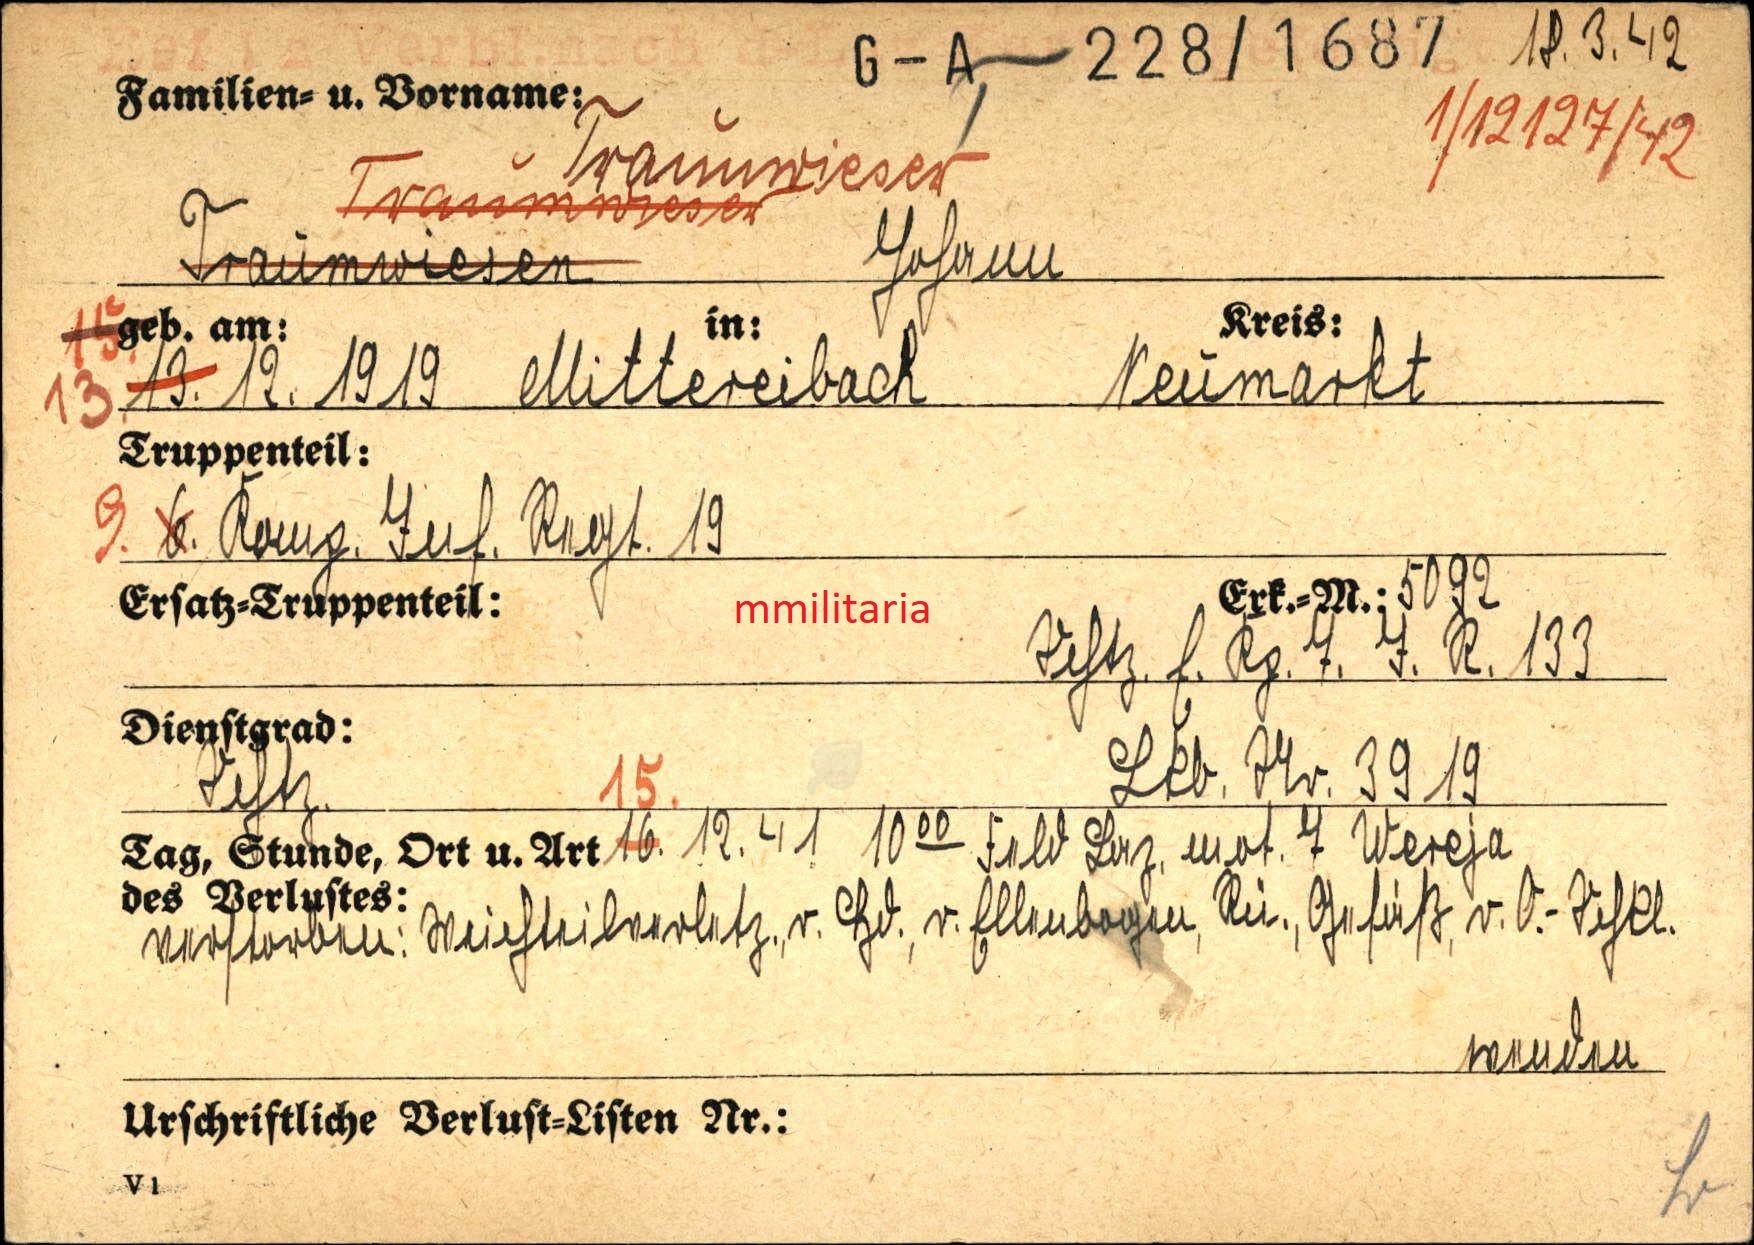 G-A 228/1687 18.3.42
Familien- u. Vorname:
1/12127/42
Traunwieser
Traumwieser
Traumwiesen Johann
15.
geb. am: in: Kreis:
13. 13. 12. 1919 Mittereibach Neumarkt
Truppenteil:
9. 6. Komp. Inf. Regt. 19
Ersatz-Truppenteil: Erk.-M.: 5092
mmilitaria
Schtz. f. Kp. 7. I. R. 133
Dienstgrad: Lkb. Nr. 3919
Schtz. 15.
Tag, Stunde, Ort u. Art 16. 12. 41 10⁰⁰ Feld Laz. mot. 7 Wereja
des Verlustes:
verstorben: Weichteilverletz., r. Hd., r. Ellenbogen, Rü., Gesäß, r. O.-Schkl.
wenden
Urschriftliche Verlust-Listen Nr.:
V 1